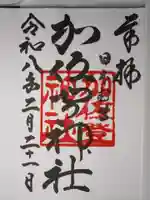 奉拝
加佐登神社
令和八年二月二十一日